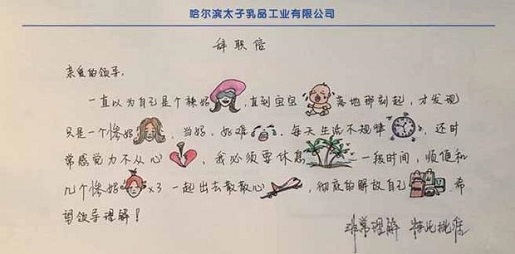 哈尔滨太子乳品工业有限公司
辞职信
亲爱的领导：
一直以为自己是个辣妈，直到宝宝落地那刻起，才发现
只是一个惨妈，当妈，如难，每天生活不规律，还时
常感觉力不从心，我必须要休息一段时间，顺便和
几个惨妈x3一起出去散散心，彻底的解放自己，希
望领导理解！
非常理解 特此批准